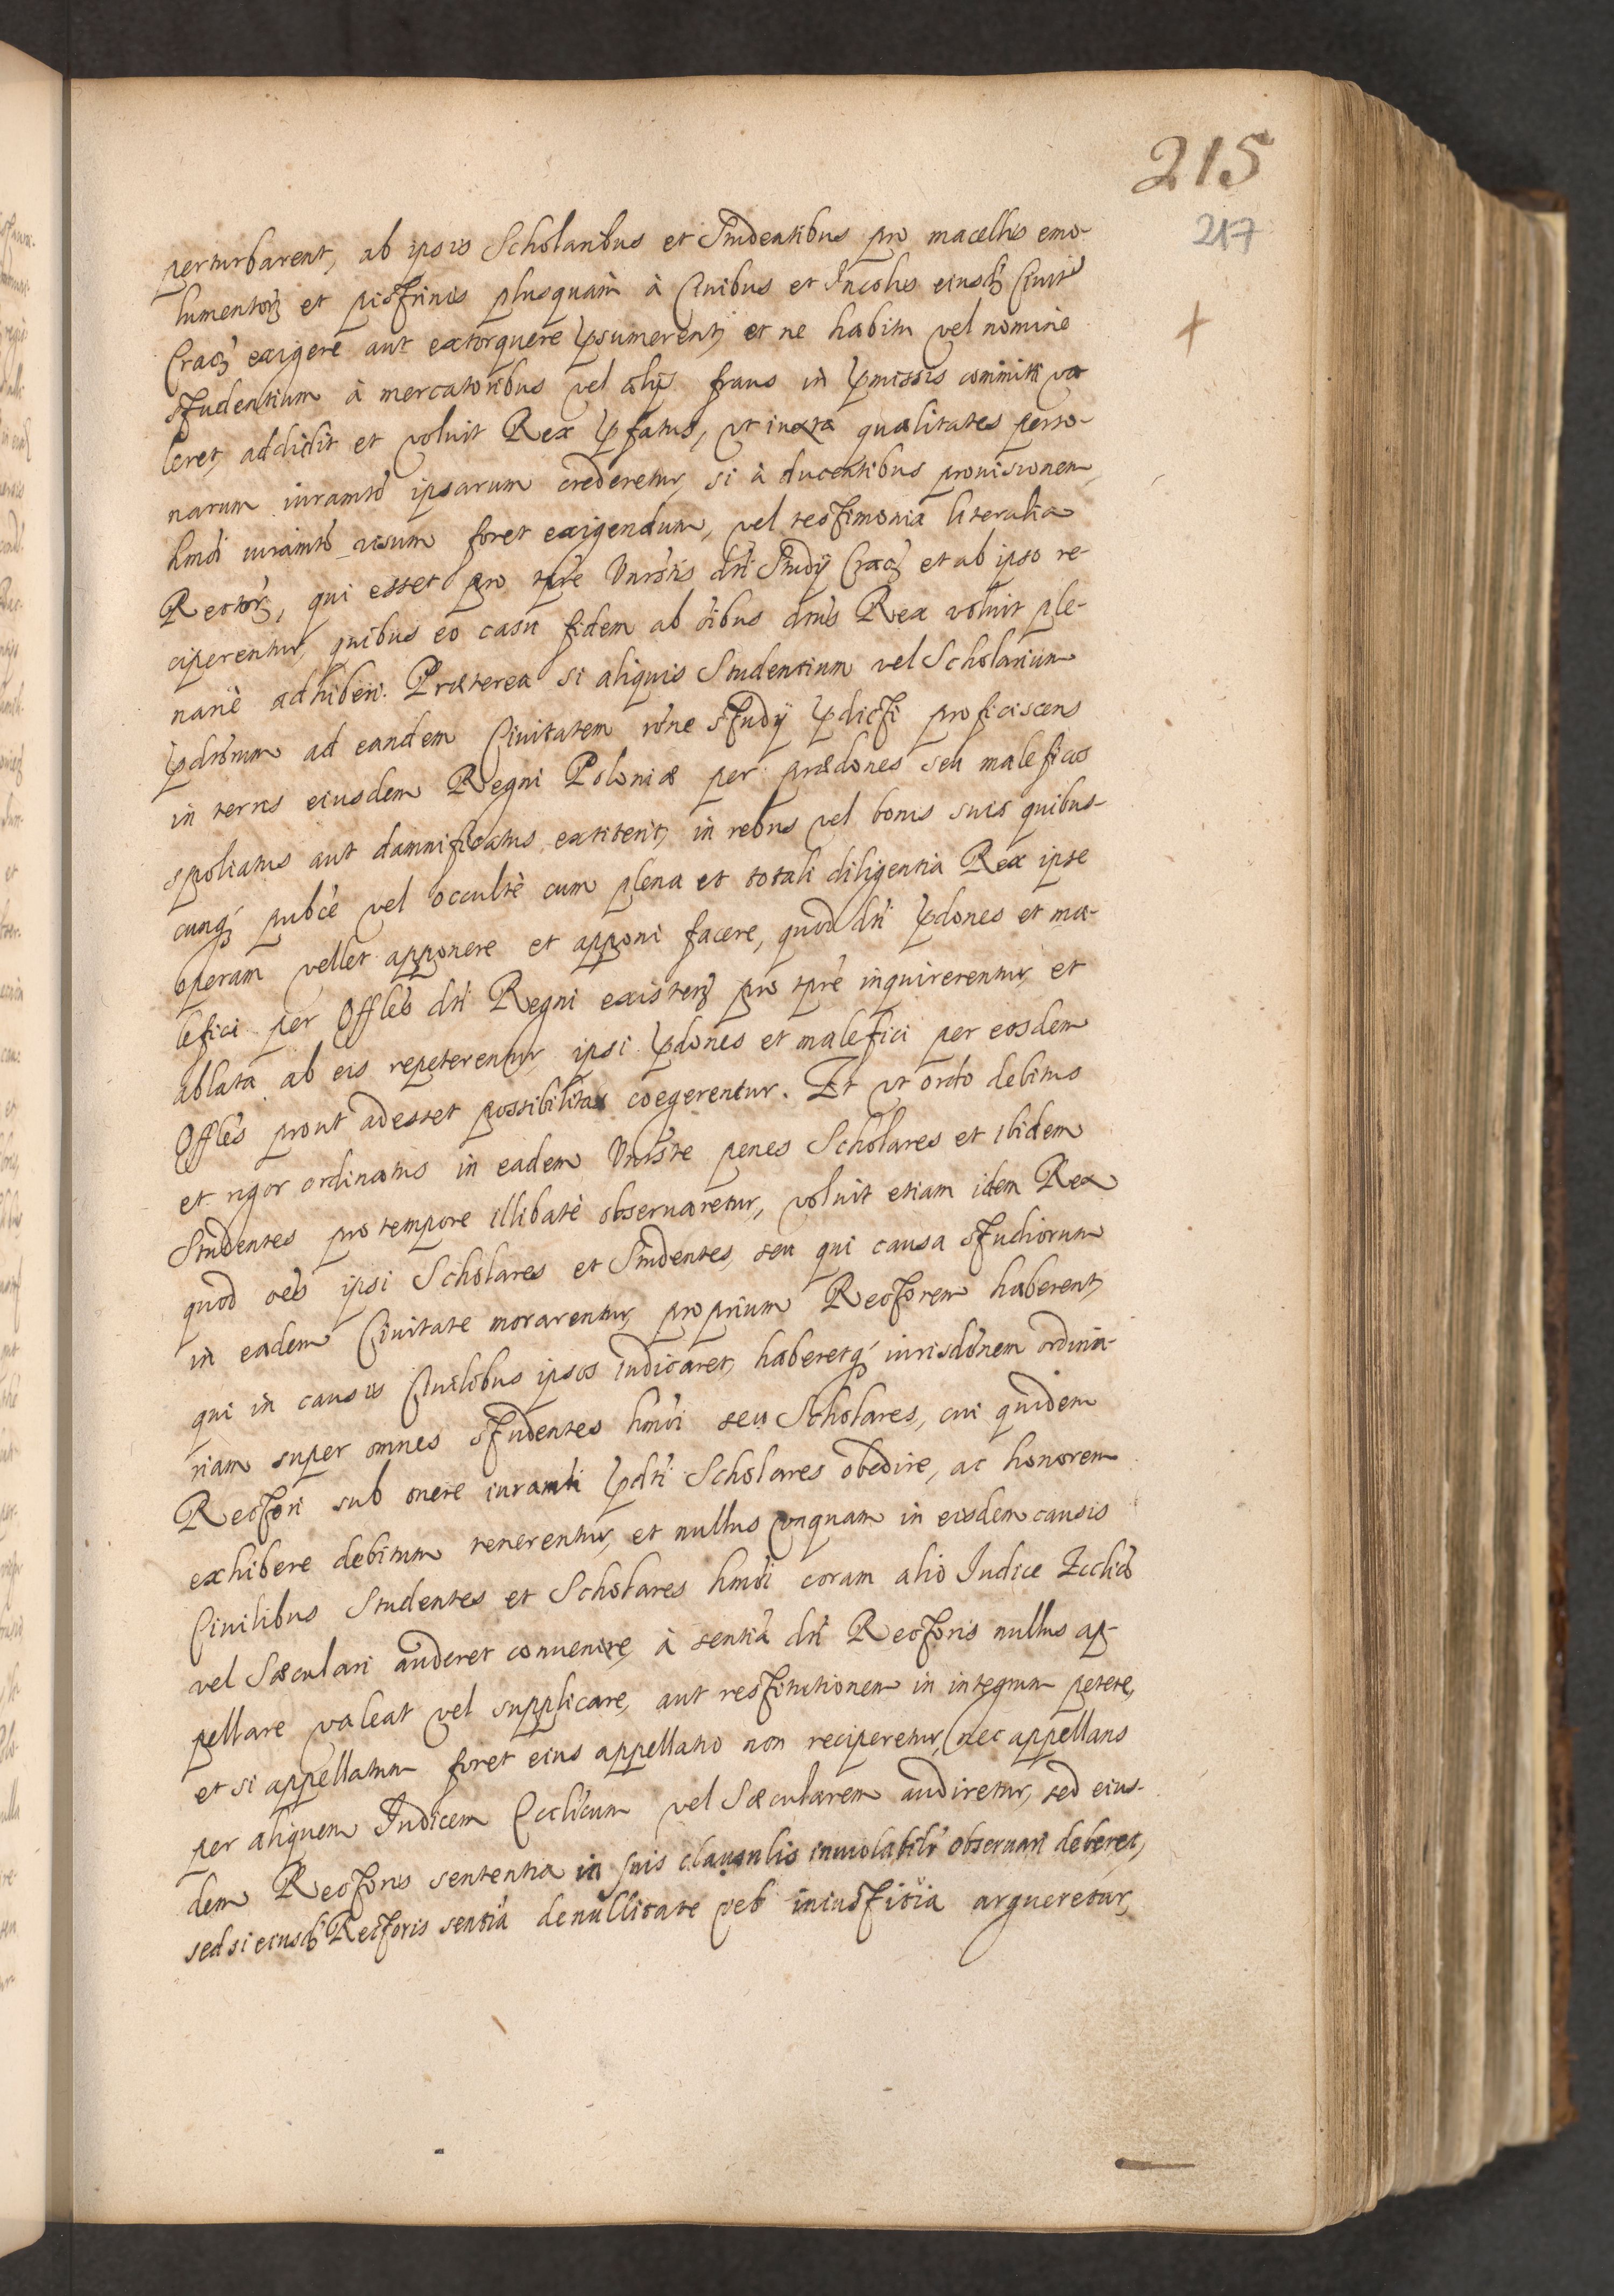 215
217
perturbarent, ab ipsis Scholaribus et Studentibus pro macellis emo-
lumentorꝫ et pistrinis plusquàm à Ciuibus et Incolis eiusdꝫ Ciuit̃
Cracꝫ exigere aut extorquere p̱sumerent, et ne habitu vel nomine
studentium à mercatoribus vel alijs fraus in p̱missis committi va-
leret, addidit et voluit Rex p̱fatus, vt iuxta qualitates perso-
narum iuramto ipsarum crederetur, si à ducentibus prouisionem
hmõi iuramto visum foret exigendum, vel testimonia literalia
Rectorꝫ, qui esset pro tp̃re Vnirs̃tis dti Studij Cracꝫ et ab ipso re-
ciperentur, quibus eo casu fidem ab õibus dnus Rex voluit ple-
nariè adhiberi. Præterea si aliquis Studentium vel Scholarium
p̱dtorum ad eandem Ciuitatem rõne studij p̱dicti proficiscens
in terris eiusdem Regni Poloniæ per prædones seu maleficos
spoliatus aut damnificatus extiterit, in rebus vel bonis suis quibus-
cunq́ꝫ pub̃ce vel occultè cum plena et totali diligentia Rex ipse
operam vellet apponere et apponi facere, quod dti p̱dones et ma-
lefici per Offles dti Regni existenꝫ pro tp̃re inquirerentur, et
ablata ab eis repeterentur, ipsi p̱dones et malefici per eosdem
Offles prout adesset possibilitas coegerentur. Et vt ordo debitus
et rigor ordinatus in eadem Vnirs̃te penes Scholares et ibidem
Studentes pro tempore illibatè obseruaretur, voluit etiam idem Rex
quod oẽs ipsi Scholares et Studentes, seu qui causa studiorum
in eadem Ciuitate morarentur, proprium Rectorem haberent,
qui in causis Ciuilibus ipsos iudicaret, haberetq́ꝫ iurisdõnem ordina-
riam super omnes studentes hmõi seu Scholares, cui quidem
Rectori sub onere iuramti p̱dti Scholares obedire, ac honorem
exhibere debitum tenerentur, et nullus vnquam in eisdem causis
Ciuilibus Studentes et Scholares hmõi coram alio Iudice Ecclico
vel Sæculari auderet conuenire, à sentia dti Rectoris nullus ap-
pellare valeat vel supplicare, aut restitutionem in integrum petere,
et si appellatum foret eius appellatio non reciperetur, nec appellans
per aliquem Iudicem Ecclicum vel Sæcularem audiretur, sed eius-
dem Rectoris sententia in suis clausulis inuiolabilr obseruari deberet,
sed si eiusdꝫ Rectoris sentia de nullitate vel iniustitia argueretur,